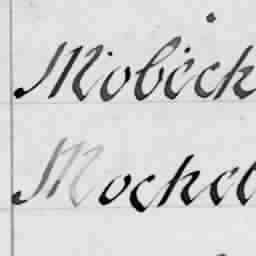 Mobëck
Mockel